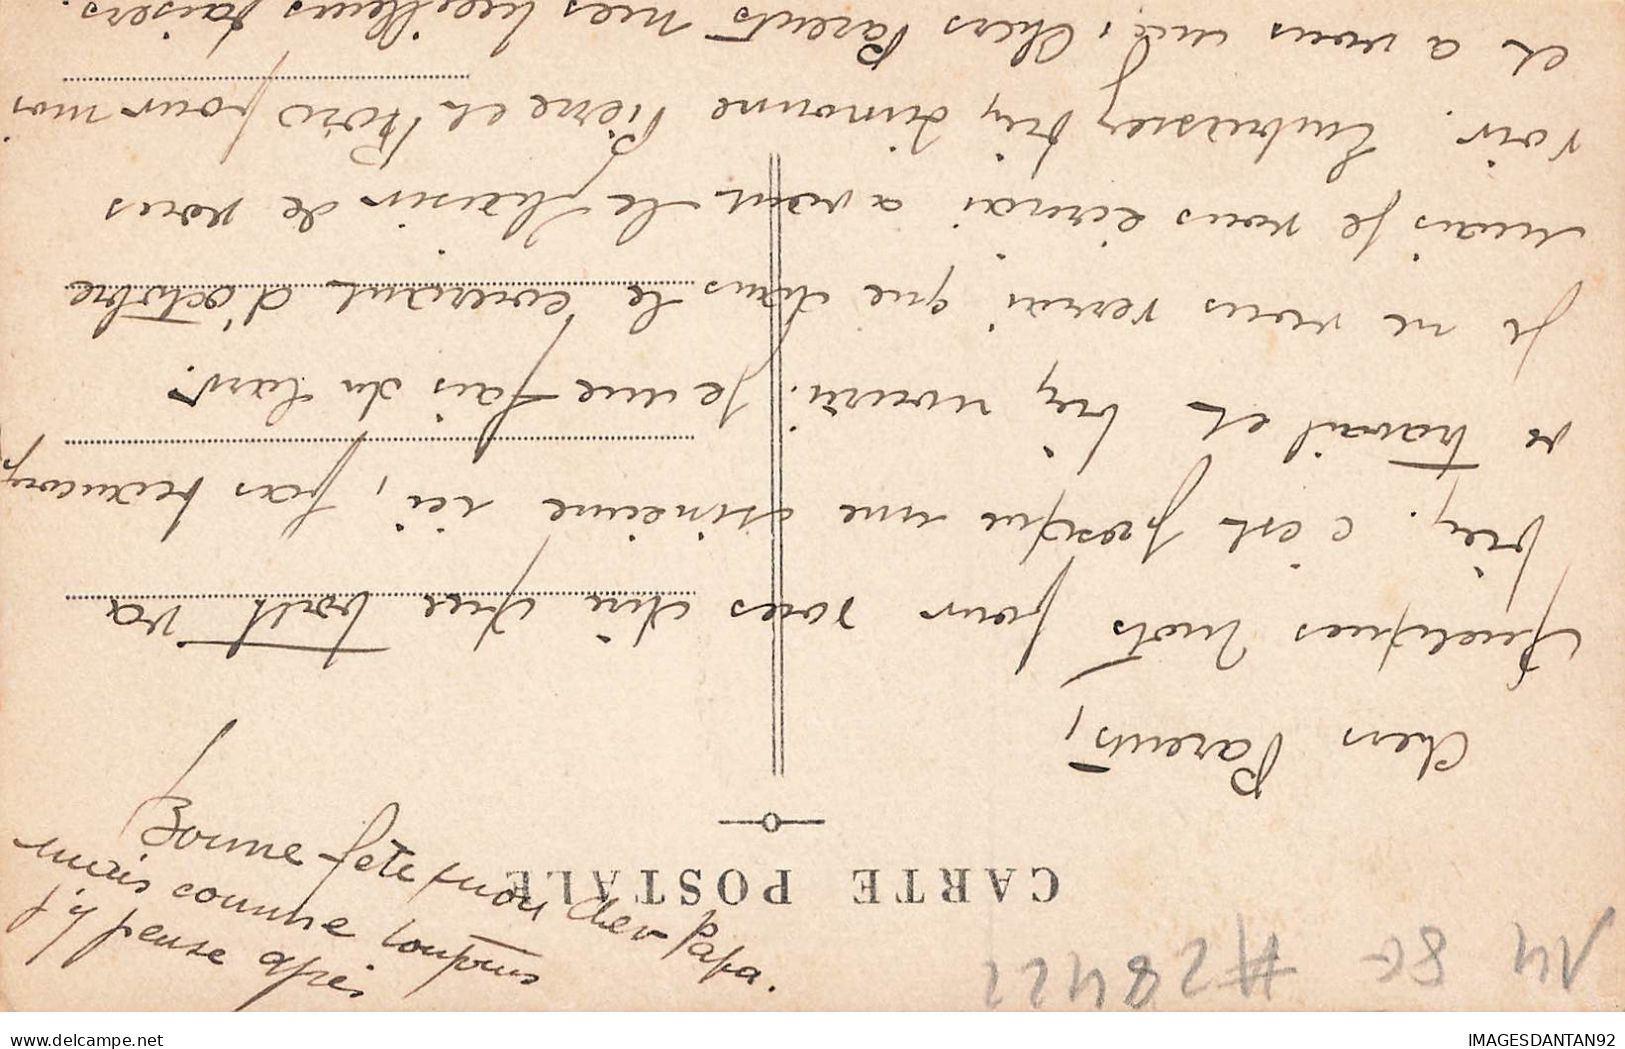 Chers Parents,
Quelques mots pour vous dire que tout va
bien. c'est presque une sinécure ici, pas beaucoup
de travail et bien nourri. Je me fais du lard.
Je ne vous verrai que dans le courant d'octobre
mais je vous écrirai avant le plaisir de vous
voir. Embrassez bien Simonne Pierre et pour moi
et a vous mes Chers Parents mes meilleurs baisers.
CARTE POSTALE
Bonne fête mon cher Papa.
mais comme toujours
j'y pense après
14 80 #28422
IMAGESDANTAN92
delcampe.net